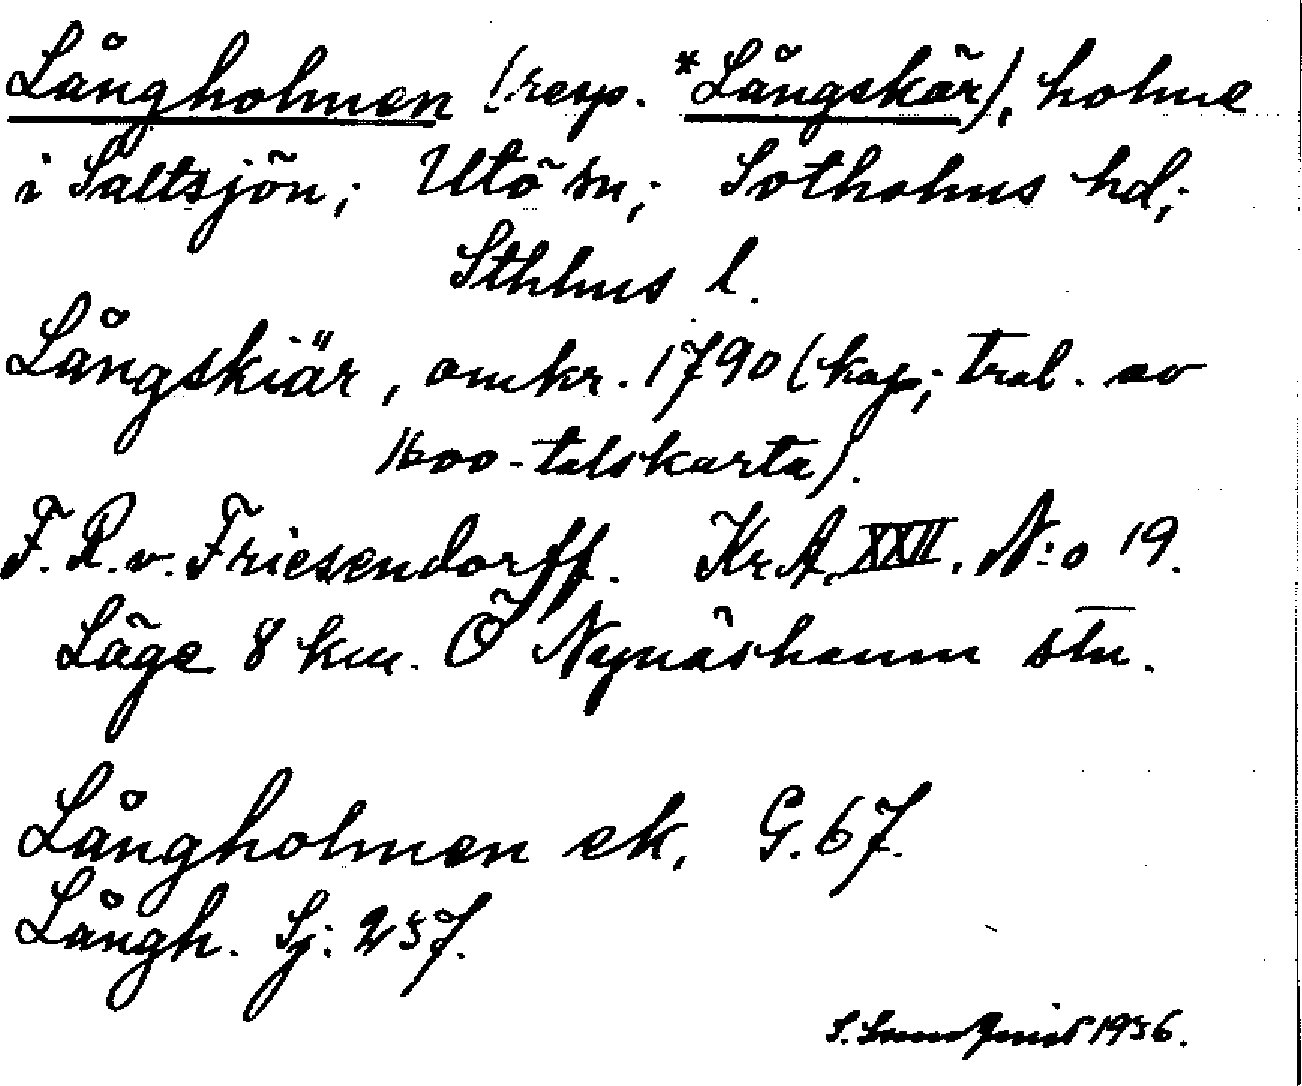 Långholmen (resp. *Långskär), holme
i Saltsjön; Utö sn; Sotholms hd;
Sthlms l.
Långskiär, omkr. 1790 (kop; trol. av
1600-talskarta).
F. R. v. Friesendorff. KrA. XXII. N:o 19.
Läge 8 km. Ö Nynäshamn stn.
Långholmen ek. G. 67.
Långh. Sj: 257.
S. Sundquist 1936.